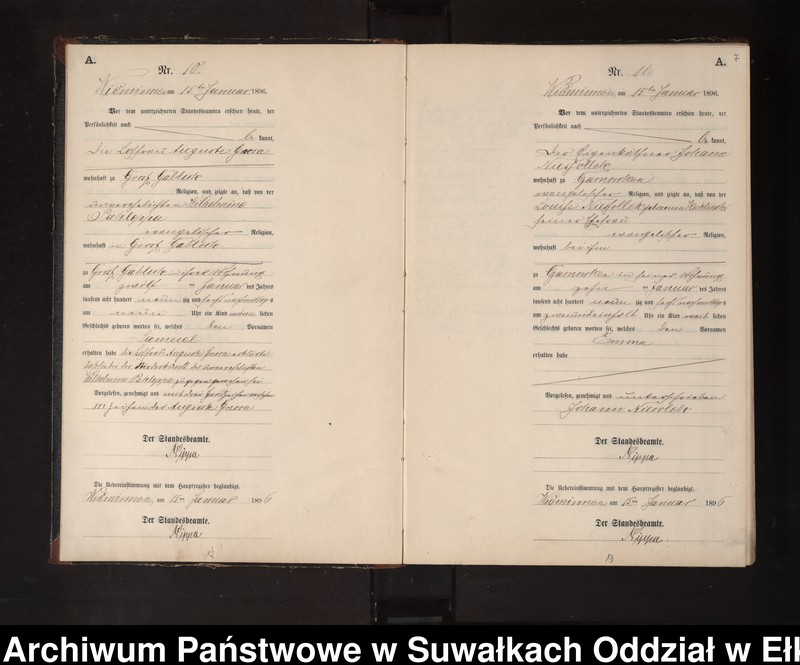 A.
Nr. 10.
Widminnen am 15ten Januar 1896.
Vor dem unterzeichneten Standesbeamten erschien heute, der
Persönlichkeit nach
be kannt,
die Losfrau Auguste Gusra
wohnhaft zu Gross Gablick
Religion, und zeigte an, daß von der
unverehelichten Wilhelmine
evangelischer Religion,
wohnhaft in Gross Gablick
zu Gross Gablick in ihrer Wohnung
am zwölf ten Januar des Jahres
tausend acht hundert neun zig und sechs Nachmittags
um neun Uhr ein Kind männ lichen
Geschlechts geboren worden sei, welches den Vornamen
Samuel
erhalten habe
Vorgelesen, genehmigt und
Der Standesbeamte.
Nippa
Die Uebereinstimmung mit dem Hauptregister beglaubigt.
Widminnen, am 15ten Januar 1896
Der Standesbeamte.
Nippa
7
A.
Nr. 11.
Widminnen am 15ten Januar 1896.
Vor dem unterzeichneten Standesbeamten erschien heute, der
Persönlichkeit nach
be kannt,
der Eigenkäthner Johann
wohnhaft zu Gornowken
evangelischer Religion, und zeigte an, daß von der
Louise geborenen
seiner Ehefrau
evangelischer Religion,
wohnhaft bei ihm
zu Gornowken in seiner Wohnung
am zehn ten Januar des Jahres
tausend acht hundert neun zig und sechs Nachmittags
um Uhr ein Kind weib lichen
Geschlechts geboren worden sei, welches den Vornamen
Emma
erhalten habe
Vorgelesen, genehmigt und unterschrieben
Johann
Der Standesbeamte.
Nippa
Die Uebereinstimmung mit dem Hauptregister beglaubigt.
Widminnen, am 15ten Januar 1896
Der Standesbeamte.
Nippa
Archiwum Państwowe w Suwałkach Oddział w Eł